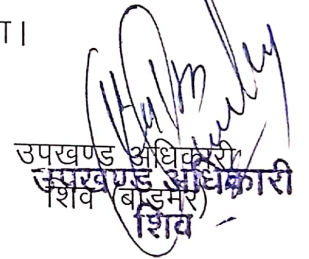 ा।
उपखण्ड अधिकारी
उपखण्ड अधिकारी
शिव (बाडमेर)
शिव